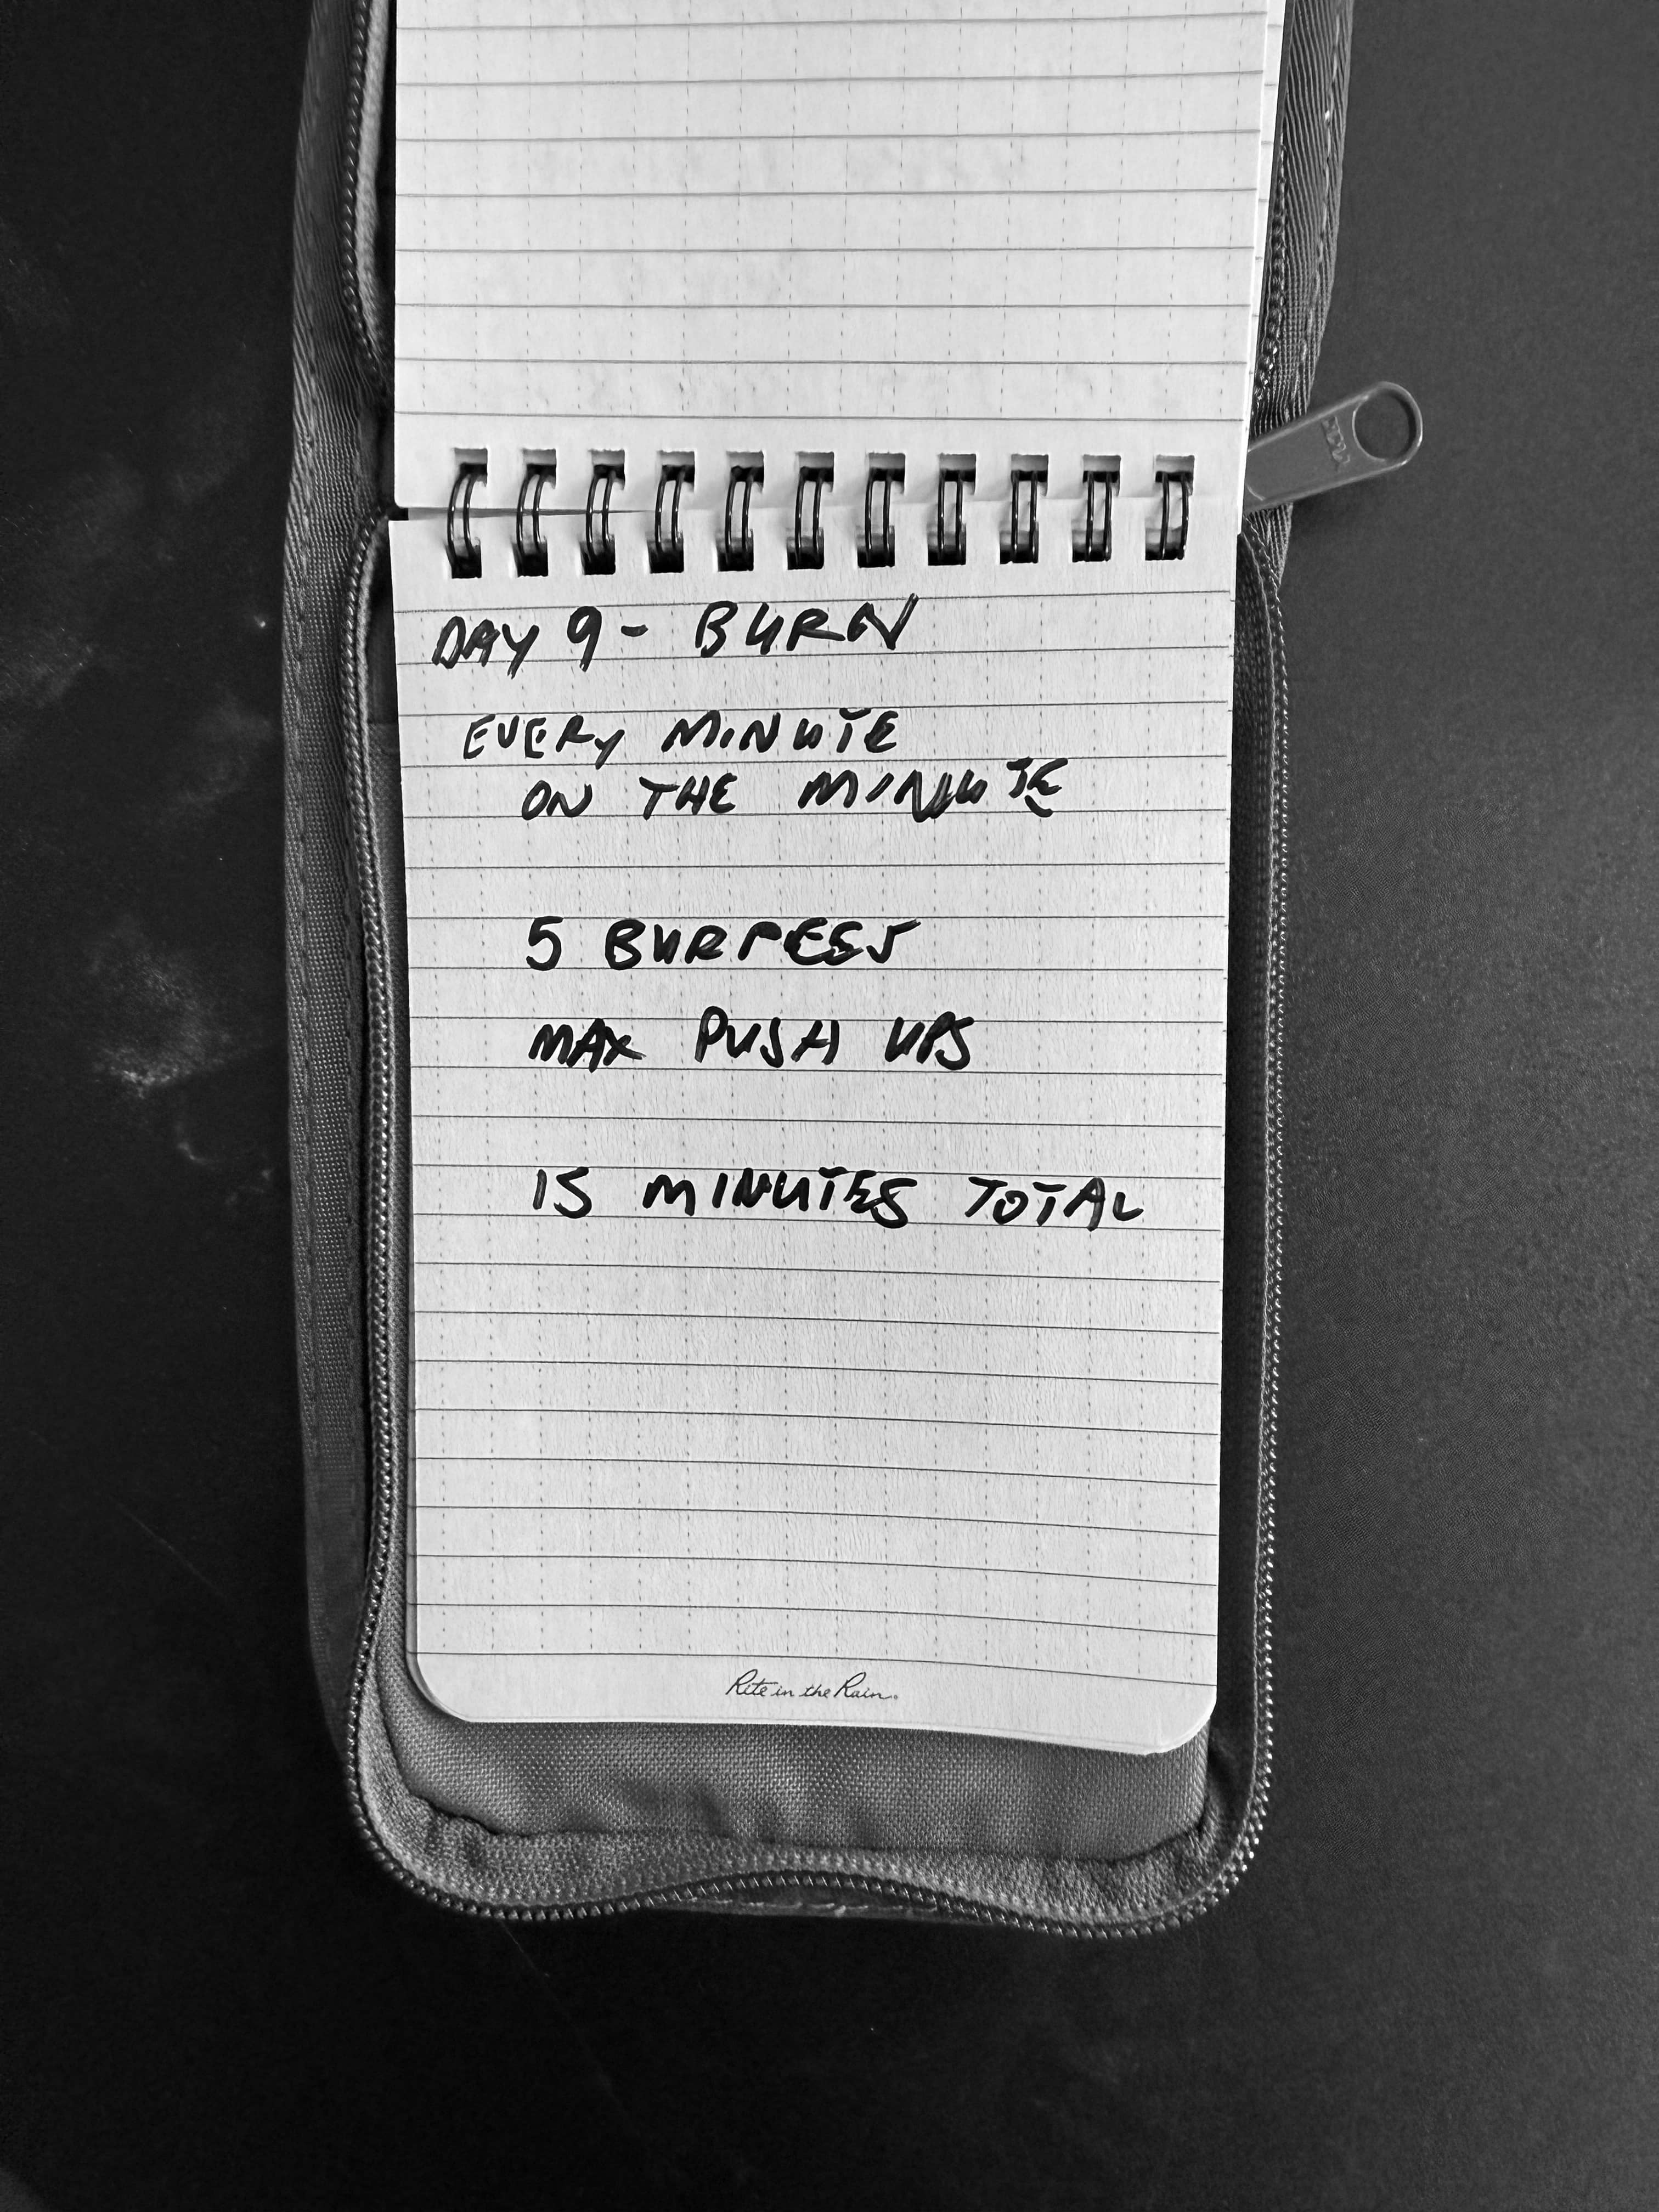 DAY 9 - BURN
EVERY MINUTE
ON THE MINUTE
5 BURPEES
MAX PUSH UPS
15 MINUTES TOTAL
Rite in the Rain.